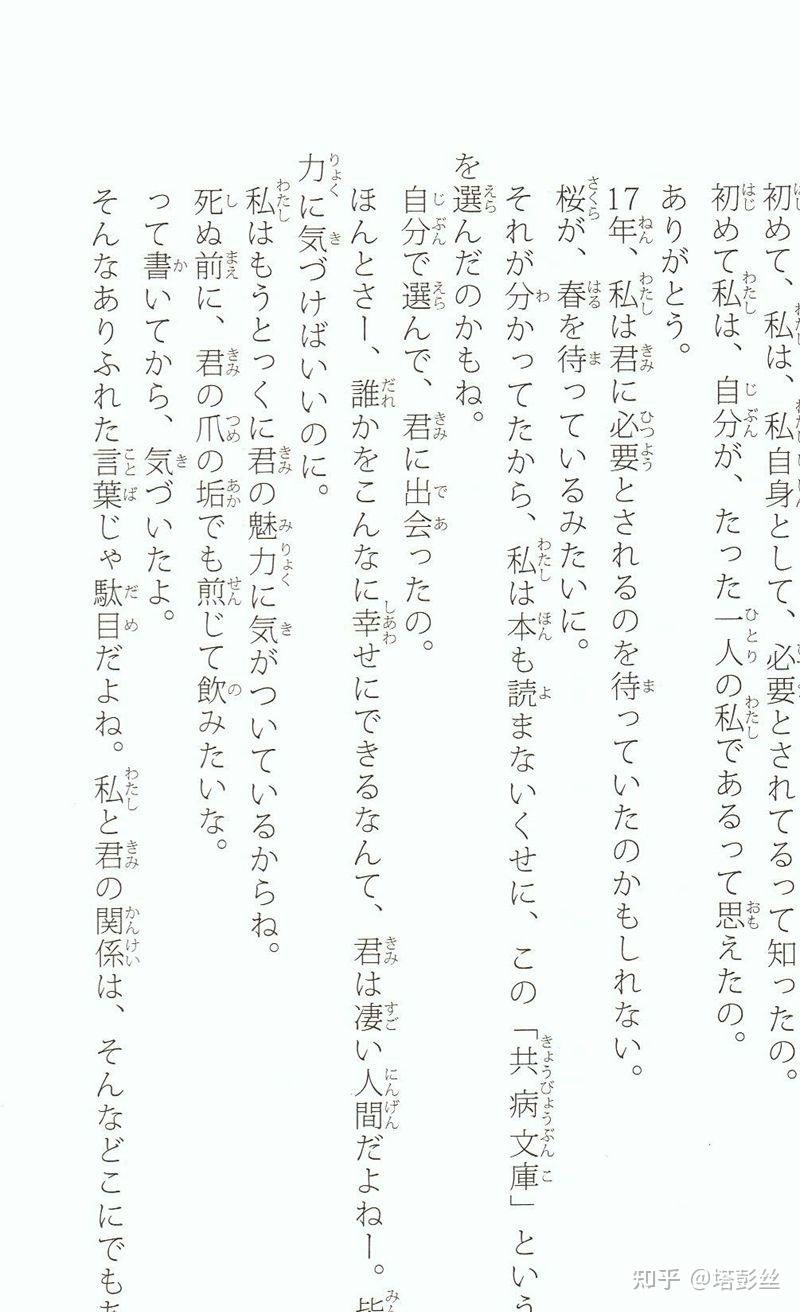 初めて、私は、私自身として、必要とされてるって知ったの。
初めて私は、自分が、たった一人の私であるって思えたの。
ありがとう。
17年、私は君に必要とされるのを待っていたのかもしれない。
桜が、春を待っているみたいに。
それが分かってたから、私は本も読まないくせに、この「共病文庫」という
を選んだのかもね。
自分で選んで、君に出会ったの。
ほんとさー、誰かをこんなに幸せにできるなんて、君は凄い人間だよねー。皆
力に気づけばいいのに。
私はもうとっくに君の魅力に気がついているからね。
死ぬ前に、君の爪の垢でも煎じて飲みたいな。
って書いてから、気づいたよ。
そんなありふれた言葉じゃ駄目だよね。私と君の関係は、そんなどこにでも
知乎 @塔彭丝